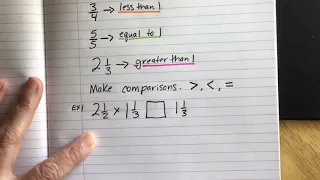 3/4 → less than 1
5/5 → equal to 1
2 1/3 → greater than 1
Make comparisons. >, <, =
EX) 2 1/2 × 1 1/3 □ 1 1/3